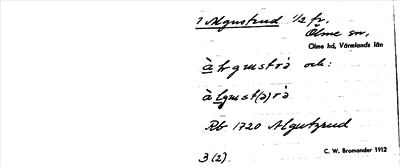 1 Algustrud 1/2 fr.
Ölme sn,
Ölme hd, Värmlands län
àlgustrù och:
àlgust(ə)rù
Rb 1720 Algutzrud
3(2)
C. W. Bromander 1912